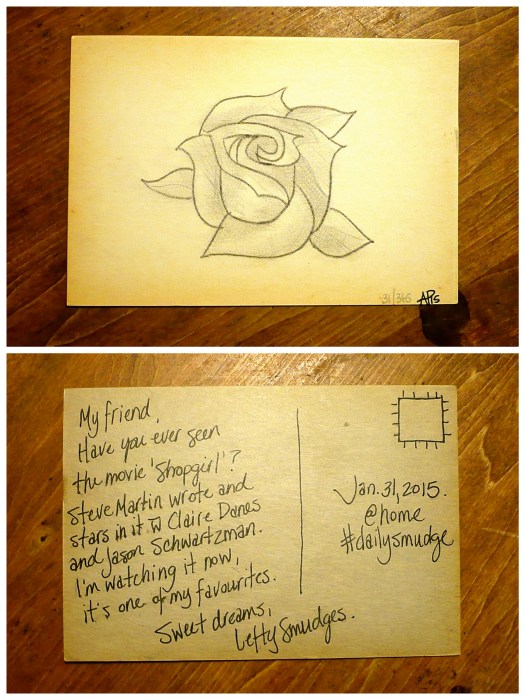 31/365 APS
My friend,
Have you ever seen
the movie 'Shopgirl'?
Steve Martin wrote and
stars in it w Claire Danes
and Jason Schwartzman.
I'm watching it now,
it's one of my favourites.
Sweet dreams,
Lefty Smudges.
Jan. 31, 2015.
@home
#dailysmudge